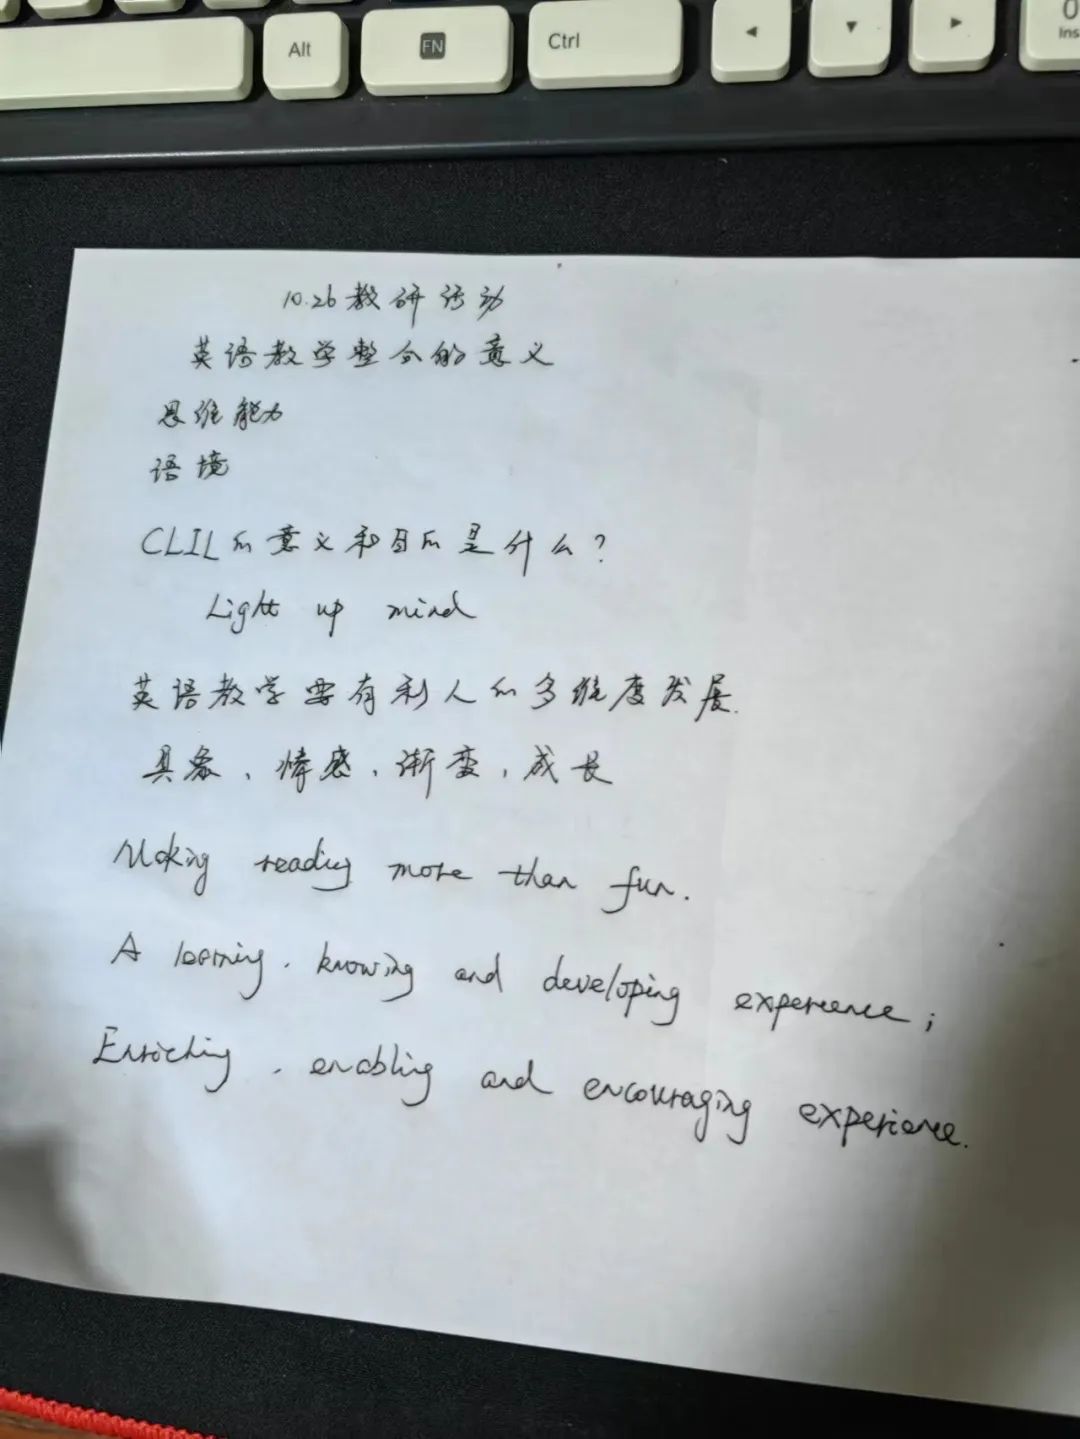 Alt FN Ctrl ◄ ▼ ► 0 Ins
10.26教研活动
英语教学整合的意义
思维能力
语境
CLIL的意义和目的是什么?
Light up mind
英语教学要有利人的多维度发展.
具象、情感、渐变,成长
Making reading more than fun.
A learning, knowing and developing experience;
Enriching, enabling and encouraging experience.